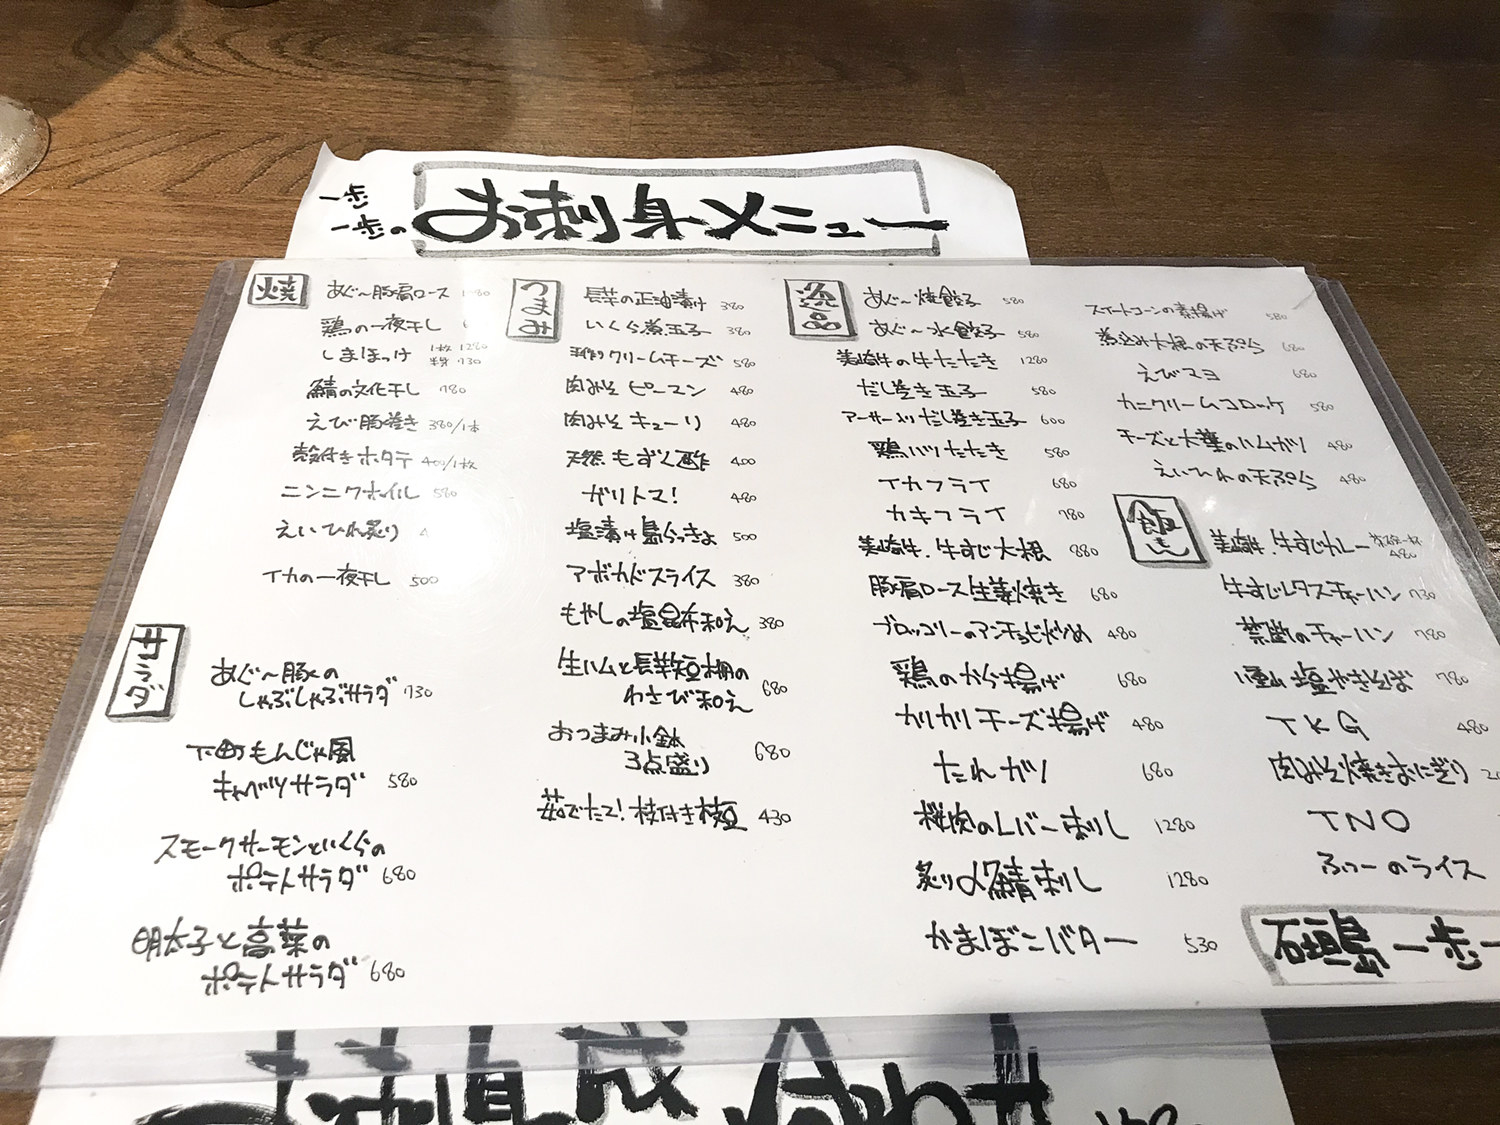 一歩
一歩の
お刺身メニュー
焼
あぐー豚肩ロース
鶏の一夜干し
しまほっけ 1枚 1280
半身 730
鯖の文化干し 780
えび豚巻き 380/1本
殻付きホタテ 400/1枚
ニンニクホイル 580
えいひれ炙り
イカの一夜干し 500
サラダ
あぐー豚の
しゃぶしゃぶサラダ 730
下町もんじゃ風
キャベツサラダ 580
スモークサーモンといくらの
ポテトサラダ 680
明太子と高菜の
ポテトサラダ 680
つまみ
長芋の正油漬け 380
いくら煮玉子 380
クリームチーズ 580
肉みそピーマン 480
肉みそキューリ 480
天然もずく酢 400
ガリトマ! 480
塩漬け島らっきょ 500
アボカドスライス 380
もやしの塩昆布和え 380
生ハムと長芋短冊の
わさび和え 680
おつまみ小鉢
3点盛り 680
茹でたて!枝付き枝豆 430
逸品
あぐー焼餃子 580
あぐー水餃子 580
美崎牛の牛たたき 1280
だし巻き玉子 580
アーサー入りだし巻き玉子 600
鶏ハツたたき 580
イカフライ 680
カキフライ 780
美崎牛.牛すじ大根 880
豚肩ロース生姜焼き 680
ブロッコリーのアンチョビ炒め 480
鶏のから揚げ 680
カリカリチーズ揚げ 480
たれガリ 680
桜肉のレバー刺し 1280
炙り〆鯖刺し 1280
かまぼこバター 530
スイートコーンの素揚げ 580
煮込み大根の天ぷら 680
えびマヨ 680
カニクリームコロッケ 580
チーズと大葉のハムカツ 480
えいひれの天ぷら 480
飯
美崎牛.牛すじカレー 480
牛すじレタスチャーハン 730
禁断のチャーハン 780
八重山塩やきそば 780
TKG 480
肉みそ焼きおにぎり
TNO
ふつーのライス
石垣島一歩